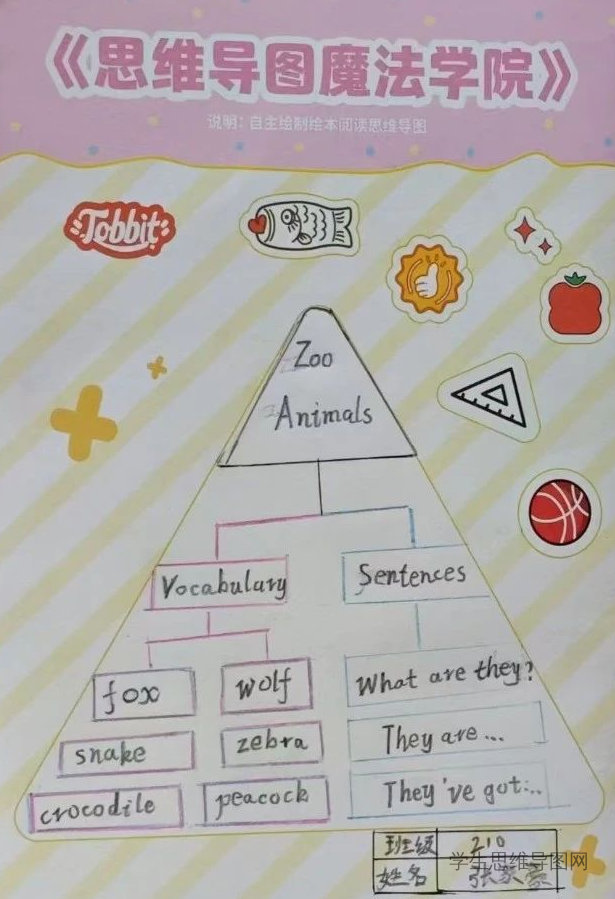 《思维导图魔法学院》
说明：自主绘制绘本阅读思维导图
Tobbit
Zoo
Animals
Vocabulary
Sentences
fox
wolf
What are they?
snake
zebra
They are...
crocodile
peacock
They've got...
班级 210
姓名 张家豪
学生思维导图网